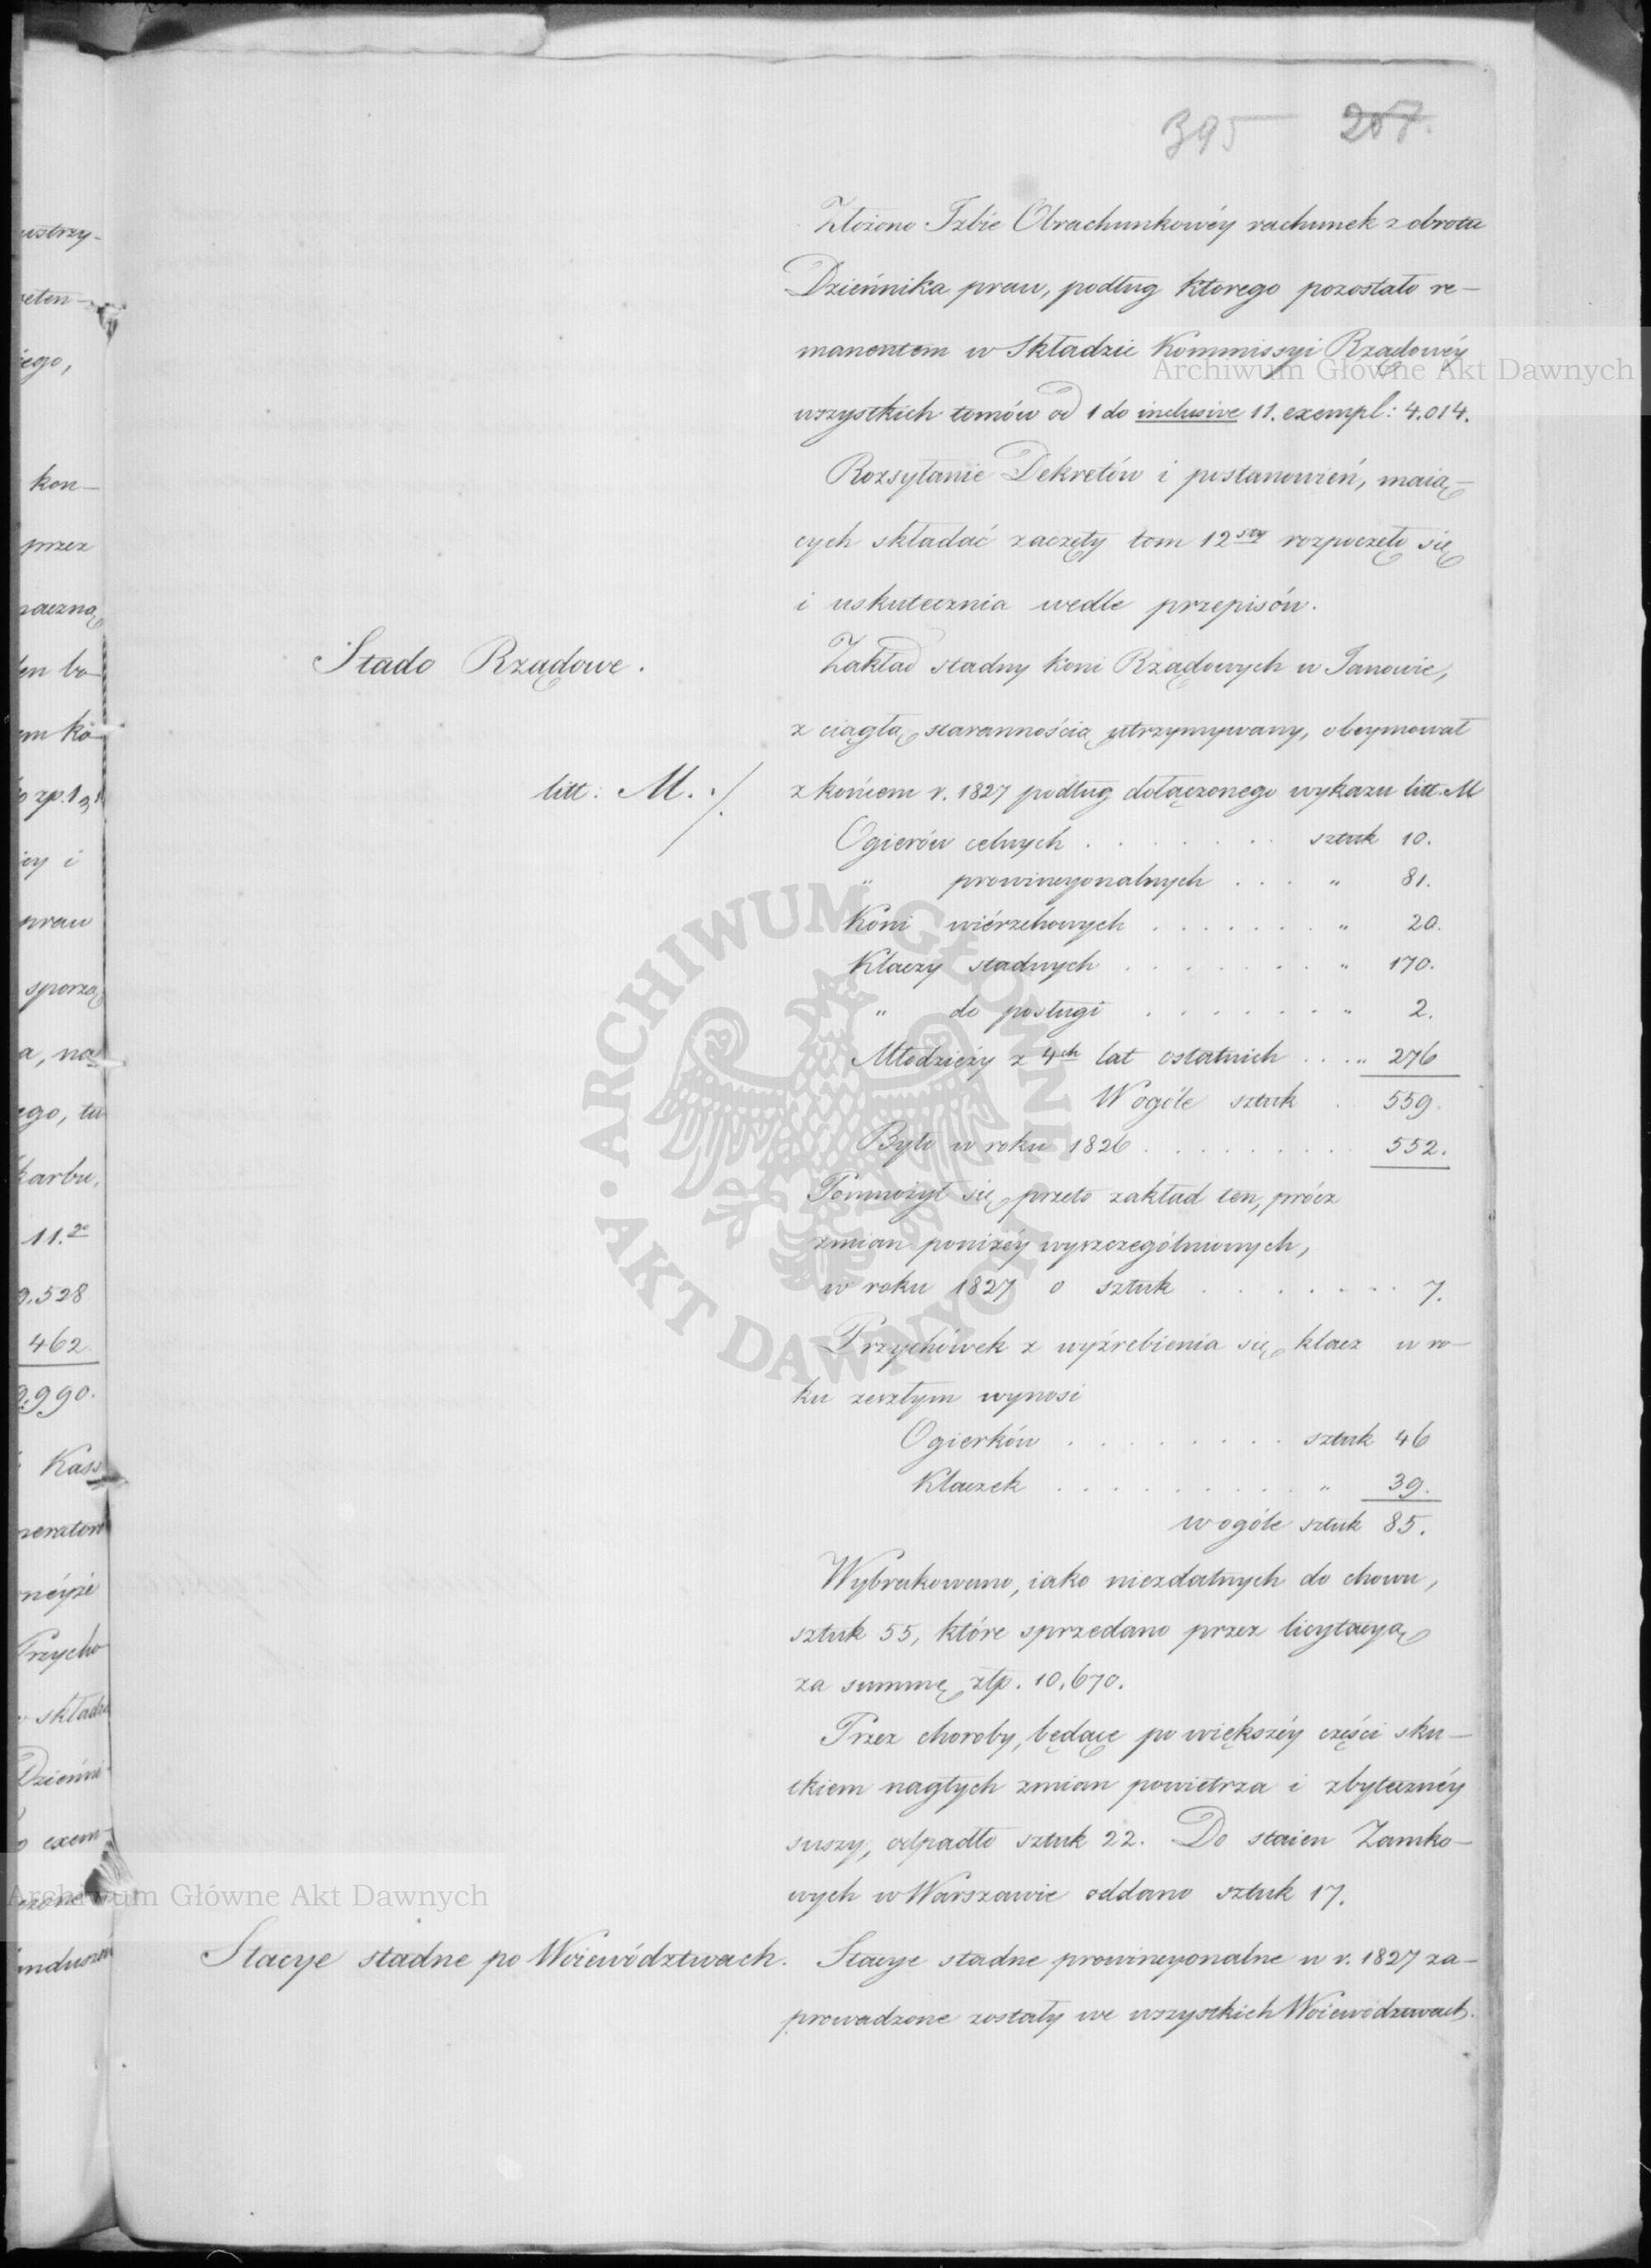 395 207.
Złożono Izbie Obrachunkowéy rachunek z obrotu
Dzieńnika praw, podług ktorego pozostało re-
manentem w Składzie Kommissyi Rządowéy
wszystkich tomów od 1 do inclusive 11. exempl: 4.014.
Rozsyłanie Dekretów i postanowień, maią-
cych składać zaczęty tom 12sty rozpoczęło się
i uskutecznia wedle przepisów.
Stado Rządowe.
Zakład stadny koni Rządowych w Janowie,
z ciągłą starannością utrzymywany, obeymował
litt: M. ./.
z końcem r. 1827 podług dołączonego wykazu litt. M
Ogierów celnych . . . . . . . sztuk 10.
" prowincyonalnych . . . " 81.
Koni wiérzchowych . . . . . . . " 20.
Klaczy stadnych . . . . . . . . " 170.
" do posługi . . . . . . . " 2.
Młodzieży z 4ch lat ostatnich . . . " 276
W ogóle sztuk . 559.
Było w roku 1826 . . . . . . . . . 552.
Pomnożył się przeto zakład ten, prócz
zmian poniżéy wyszczególnionych,
w roku 1827 o sztuk . . . . . . . . 7.
Przychówek z wyźrebienia się klacz w ro-
ku zeszłym wynosi
Ogierków . . . . . . . . sztuk 46
Klaczek . . . . . . . . . . " 39.
w ogóle sztuk 85.
Wybrakowano, iako niezdatnych do chowu,
sztuk 55, które sprzedano przez licytacyą
za summę złp. 10,670.
Przez choroby, będące po większéy części sku-
tkiem nagłych zmian powietrza i zbyteczney
suszy, odpadło sztuk 22. Do staien Zamko-
wych w Warszawie oddano sztuk 17.
Stacye stadne po Woiewództwach.
Stacye stadne prowincyonalne w r. 1827 za-
prowadzone zostały we wszystkich Woiewództwach.
ustrzy-
iego,
kon-
przez
praw
a, na
ego, tu
karbu,
11.
9.528
462
9.990.
Kass
Przycho
składzie
Dzieńni
exem-
Archiwum Główne Akt Dawnych
Archiwum Główne Akt Dawnych
ARCHIWUM GŁÓWNE AKT DAWNYCH